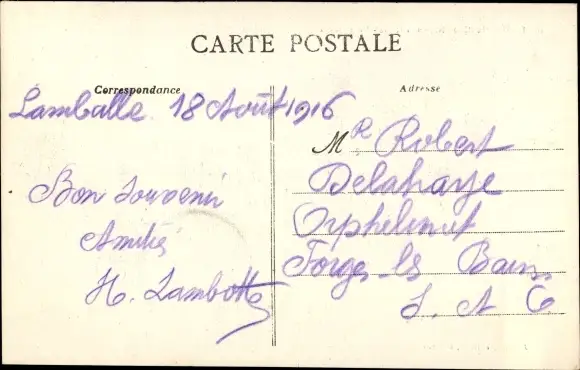 CARTE POSTALE
Correspondance
Adresse
Lamballe 18 Août 1916
Bon souvenir
Amitiés
H. Lambotte
Mr Robert
Delahaye
Orphelinat
Forges-les Bains
S. et O